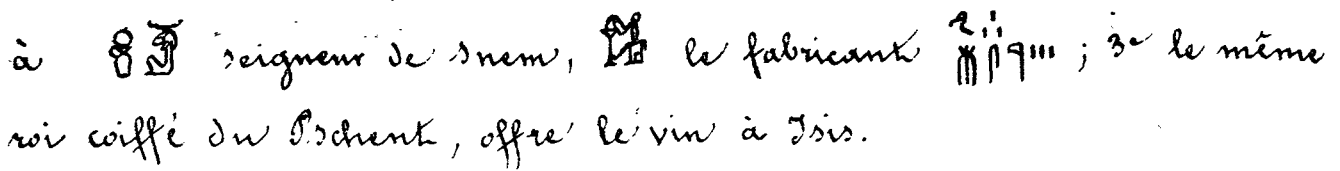 à seigneur de snem, le fabricant ; 3e le même
roi coiffé du Pschent, offre le vin à Isis.